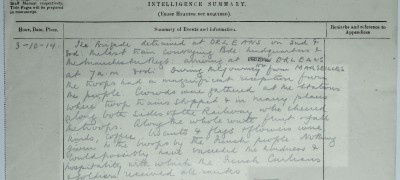 Staff Manual respectively.
Title Pages will be prepared
in manuscript.
INTELLIGENCE SUMMARY.
(Erase heading not required).
Hour, Date, Place.
Summary of Events and Information.
Remarks and reference to
Appendices.
3-10-14.
The Brigade detrained at ORLEANS on 2nd &
3rd train conveying Bde. Headquarters &
arriving at ORLEANS
at 7 a.m. 3rd. During the journey from MARSEILLES
the troops had a magnificent reception from
the people. Crowds were gathered at the stations
where troop trains stopped & in many places
along both sides of the Railway who cheered
the troops. Along the whole route fruit of all
kinds, Coffee, Biscuits & flags & flowers were
given to the troops by the French people. Nothing
could possibly have exceeded the kindness &
hospitality with which the French Civilians
& soldiers received all ranks